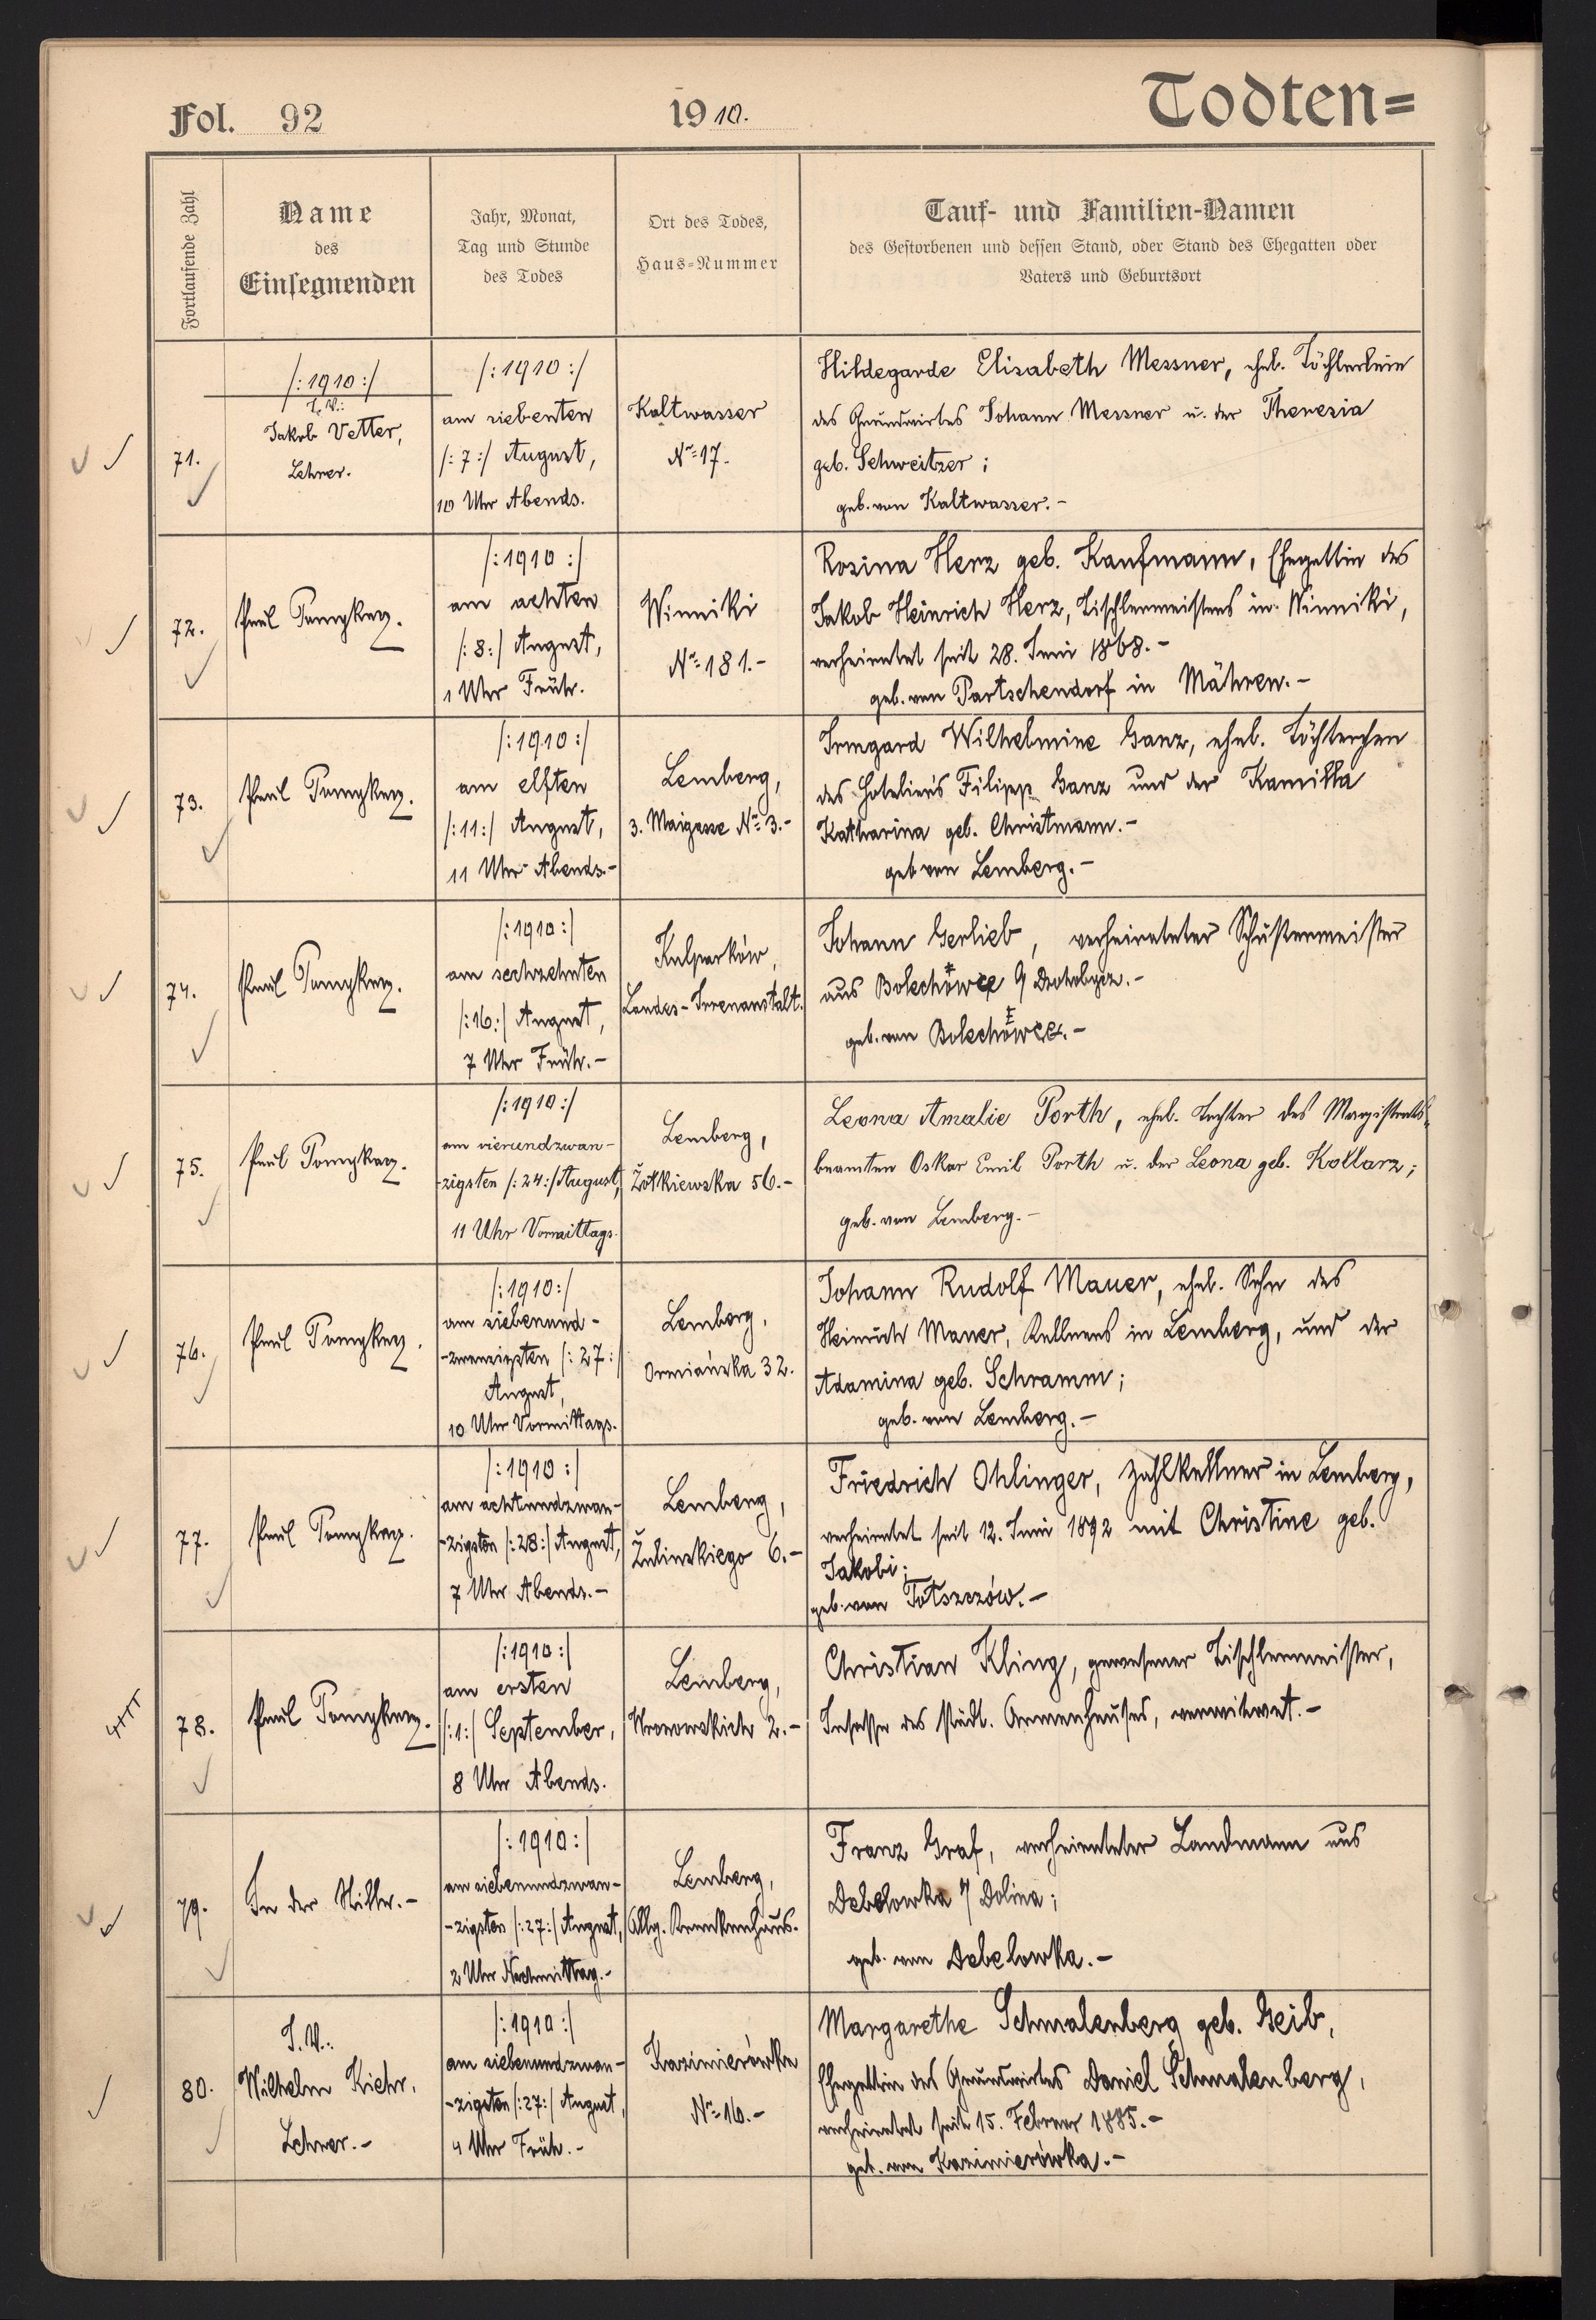 Fol. 92
1910.
Todten=
Fortlaufende Zahl
Name
des
Einsegnenden
Jahr, Monat,
Tag und Stunde
des Todes
Ort des Todes,
Haus=Nummer
Tauf- und Familien-Namen
des Gestorbenen und dessen Stand, oder Stand des Ehegatten oder
Vaters und Geburtsort
71.
/:1910:/
I. V.:
Jakob Vetter,
Lehrer.
/:1910:/
am siebenten
/:7:/ August,
10 Uhr Abends.
Kaltwasser
Nr. 17.
Hildegarde Elisabeth Messner, ehel. Töchterlein
des Grundwirtes Johann Messner u. der Theresia
geb. Schweitzer;
geb. von Kaltwasser.-
72.
Paul Pomykacz.
/:1910:/
am achten
/:8:/ August,
1 Uhr Früh.
Winniki
Nr. 181.-
Rosina Herz geb. Kaufmann, Ehegattin des
Jakob Heinrich Herz, Tischlermeisters in Winniki,
verheiratet seit 28. Juni 1868.-
geb. von Partschendorf in Mähren.-
73.
Paul Pomykacz.
/:1910:/
am elften
/:11:/ August,
11 Uhr Abends.-
Lemberg,
3. Maigasse Nr. 3.-
Irmgard Wilhelmine Ganz, ehel. Töchterchen
des Hoteliers Filipp Ganz und der Kamilla
Katharina geb. Christmann.-
geb. von Lemberg.-
74.
Paul Pomykacz.
/:1910:/
am sechzehnten
/:16:/ August,
7 Uhr Früh.-
Kulparków,
Landes-Irrenanstalt.
Johann Gerlieb, verheirateter Schustermeister
aus Bolechówce Drohobycz.-
geb. von Bolechówce.-
75.
Paul Pomykacz.
/:1910:/
am vierundzwan-
-zigsten /:24:/ August,
11 Uhr Vormittags.
Lemberg,
Żołkiewska 56.-
Leona Amalie Porth, ehel. Tochter des Magistrats-
beamten Oskar Emil Porth u. der Leona geb. Kollarz;
geb. von Lemberg.-
76.
Paul Pomykacz.
/:1910:/
am siebenund-
-zwanzigsten /:27:/
August,
10 Uhr Vormittags.
Lemberg,
Ormiańska 32.
Johann Rudolf Mauer, ehel. Sohn des
Heinrich Mauer, Kellners in Lemberg, und der
Adamina geb. Schramm;
geb. von Lemberg.-
77.
Paul Pomykacz.
/:1910:/
am achtundzwan-
-zigsten /:28:/ August,
7 Uhr Abends.-
Lemberg,
Żulinskiego 6.-
Friedrich Ohlinger, Zahlkellner in Lemberg,
verheiratet seit 12. Juni 1892 mit Christine geb.
Jakobi;
geb. von Tołszczów.-
78.
Paul Pomykacz.
/:1910:/
am ersten
/:1:/ September,
8 Uhr Abends.
Lemberg,
Wronowskich 2.-
Christian Kling, gewesener Tischlermeister,
Insasse des städt. Armenhauses, verwitwet.-
79.
In der Stille.-
/:1910:/
am siebenundzwan-
-zigsten /:27:/ August,
2 Uhr Nachmittag.-
Lemberg,
Allg. Krankenhaus.
Franz Graf, verheirateter Landmann aus
Debelowka Dolina;
geb. von Debelowka.-
80.
I. V.:
Wilhelm Kiehr,
Lehrer.-
/:1910:/
am siebenundzwan-
-zigsten /:27:/ August,
4 Uhr Früh.-
Kazimierówka
Nr. 16.-
Margarethe Schmalenberg geb. Geib,
Ehegattin des Grundwirtes Daniel Schmalenberg,
verheiratet seit 15. Februar 1885.-
geb. von Kazimierówka.-